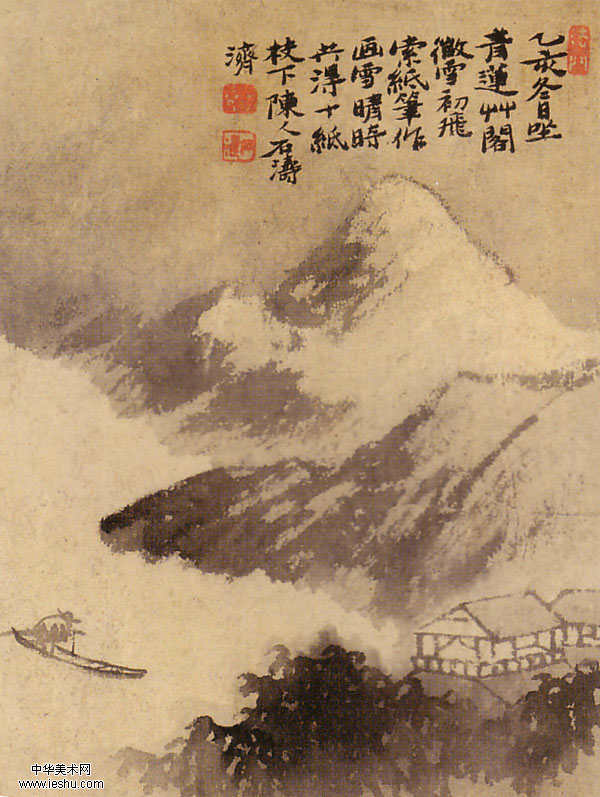 乙亥冬日坐
青蓮艸閣
微雪初飛
索紙筆作
画雪晴時
共得十紙
枝下陳人石濤
濟
中华美术网
www.ieshu.com